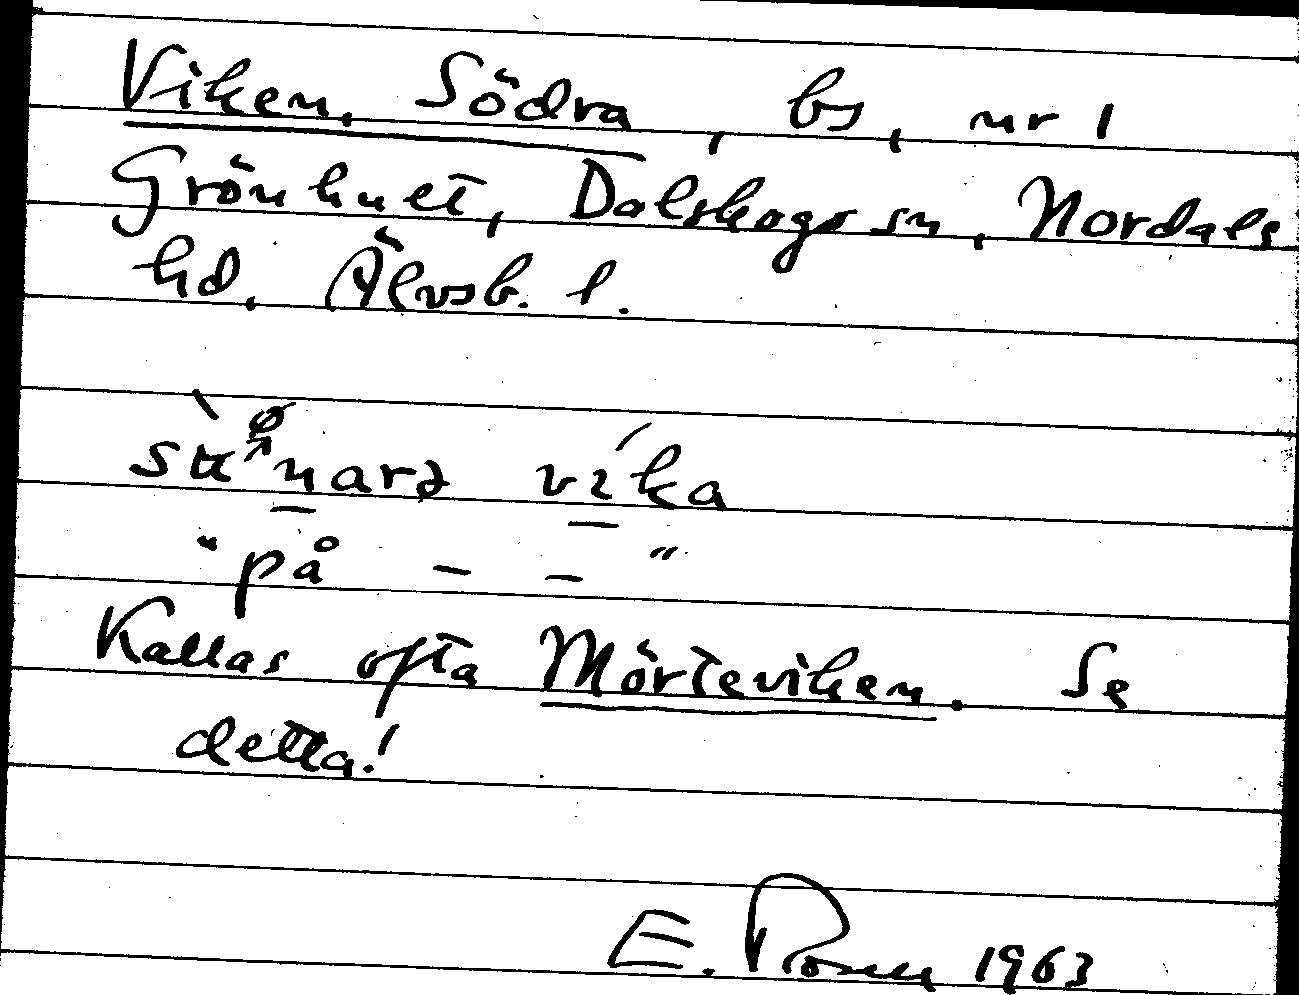 Viken, Södra, bs, nr 1
Grönhuet, Dalskogs sn, Nordals
hd, Älvsb. l.
vika
"på — — "
Kallas ofta Mörteviken. Se
detta!
E. 1963